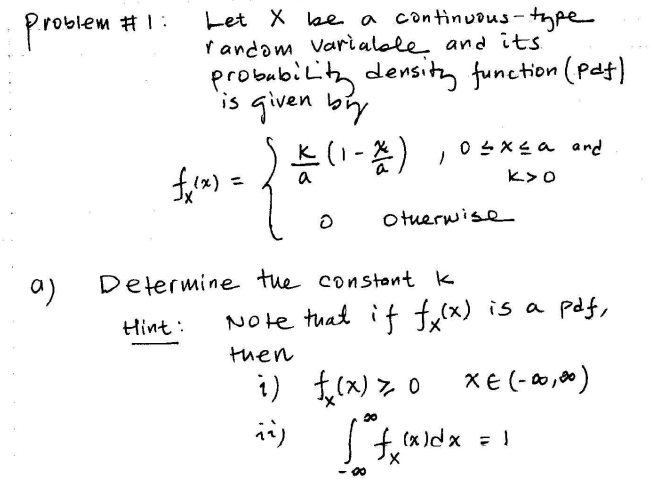 Problem # 1: Let X be a continuous-type
random variable and its
probability density function (pdf)
is given by
f_X(x) = { k/a (1 - x/a) , 0 ≤ x ≤ a and
k > 0
0 otherwise
a) Determine the constant k
Hint: Note that if f_X(x) is a pdf,
then
i) f_X(x) ≥ 0 x ∈ (-∞,∞)
ii) ∫_{-∞}^{∞} f_X(x)dx = 1